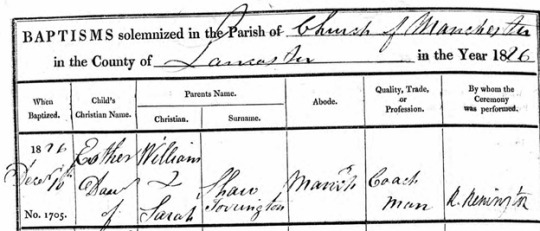 BAPTISMS solemnized in the Parish of Church of Manchester
in the County of Lancaster in the Year 1826
When Baptized.
Child's Christian Name.
Parents Name.
Christian.
Surname.
Abode.
Quality, Trade, or Profession.
By whom the Ceremony was performed.
1826.
Decer 10th
No. 1705.
Esther
Daur
of
William
&
Sarah
Shaw
Torrington
Manch
Coach
man
R. Remington